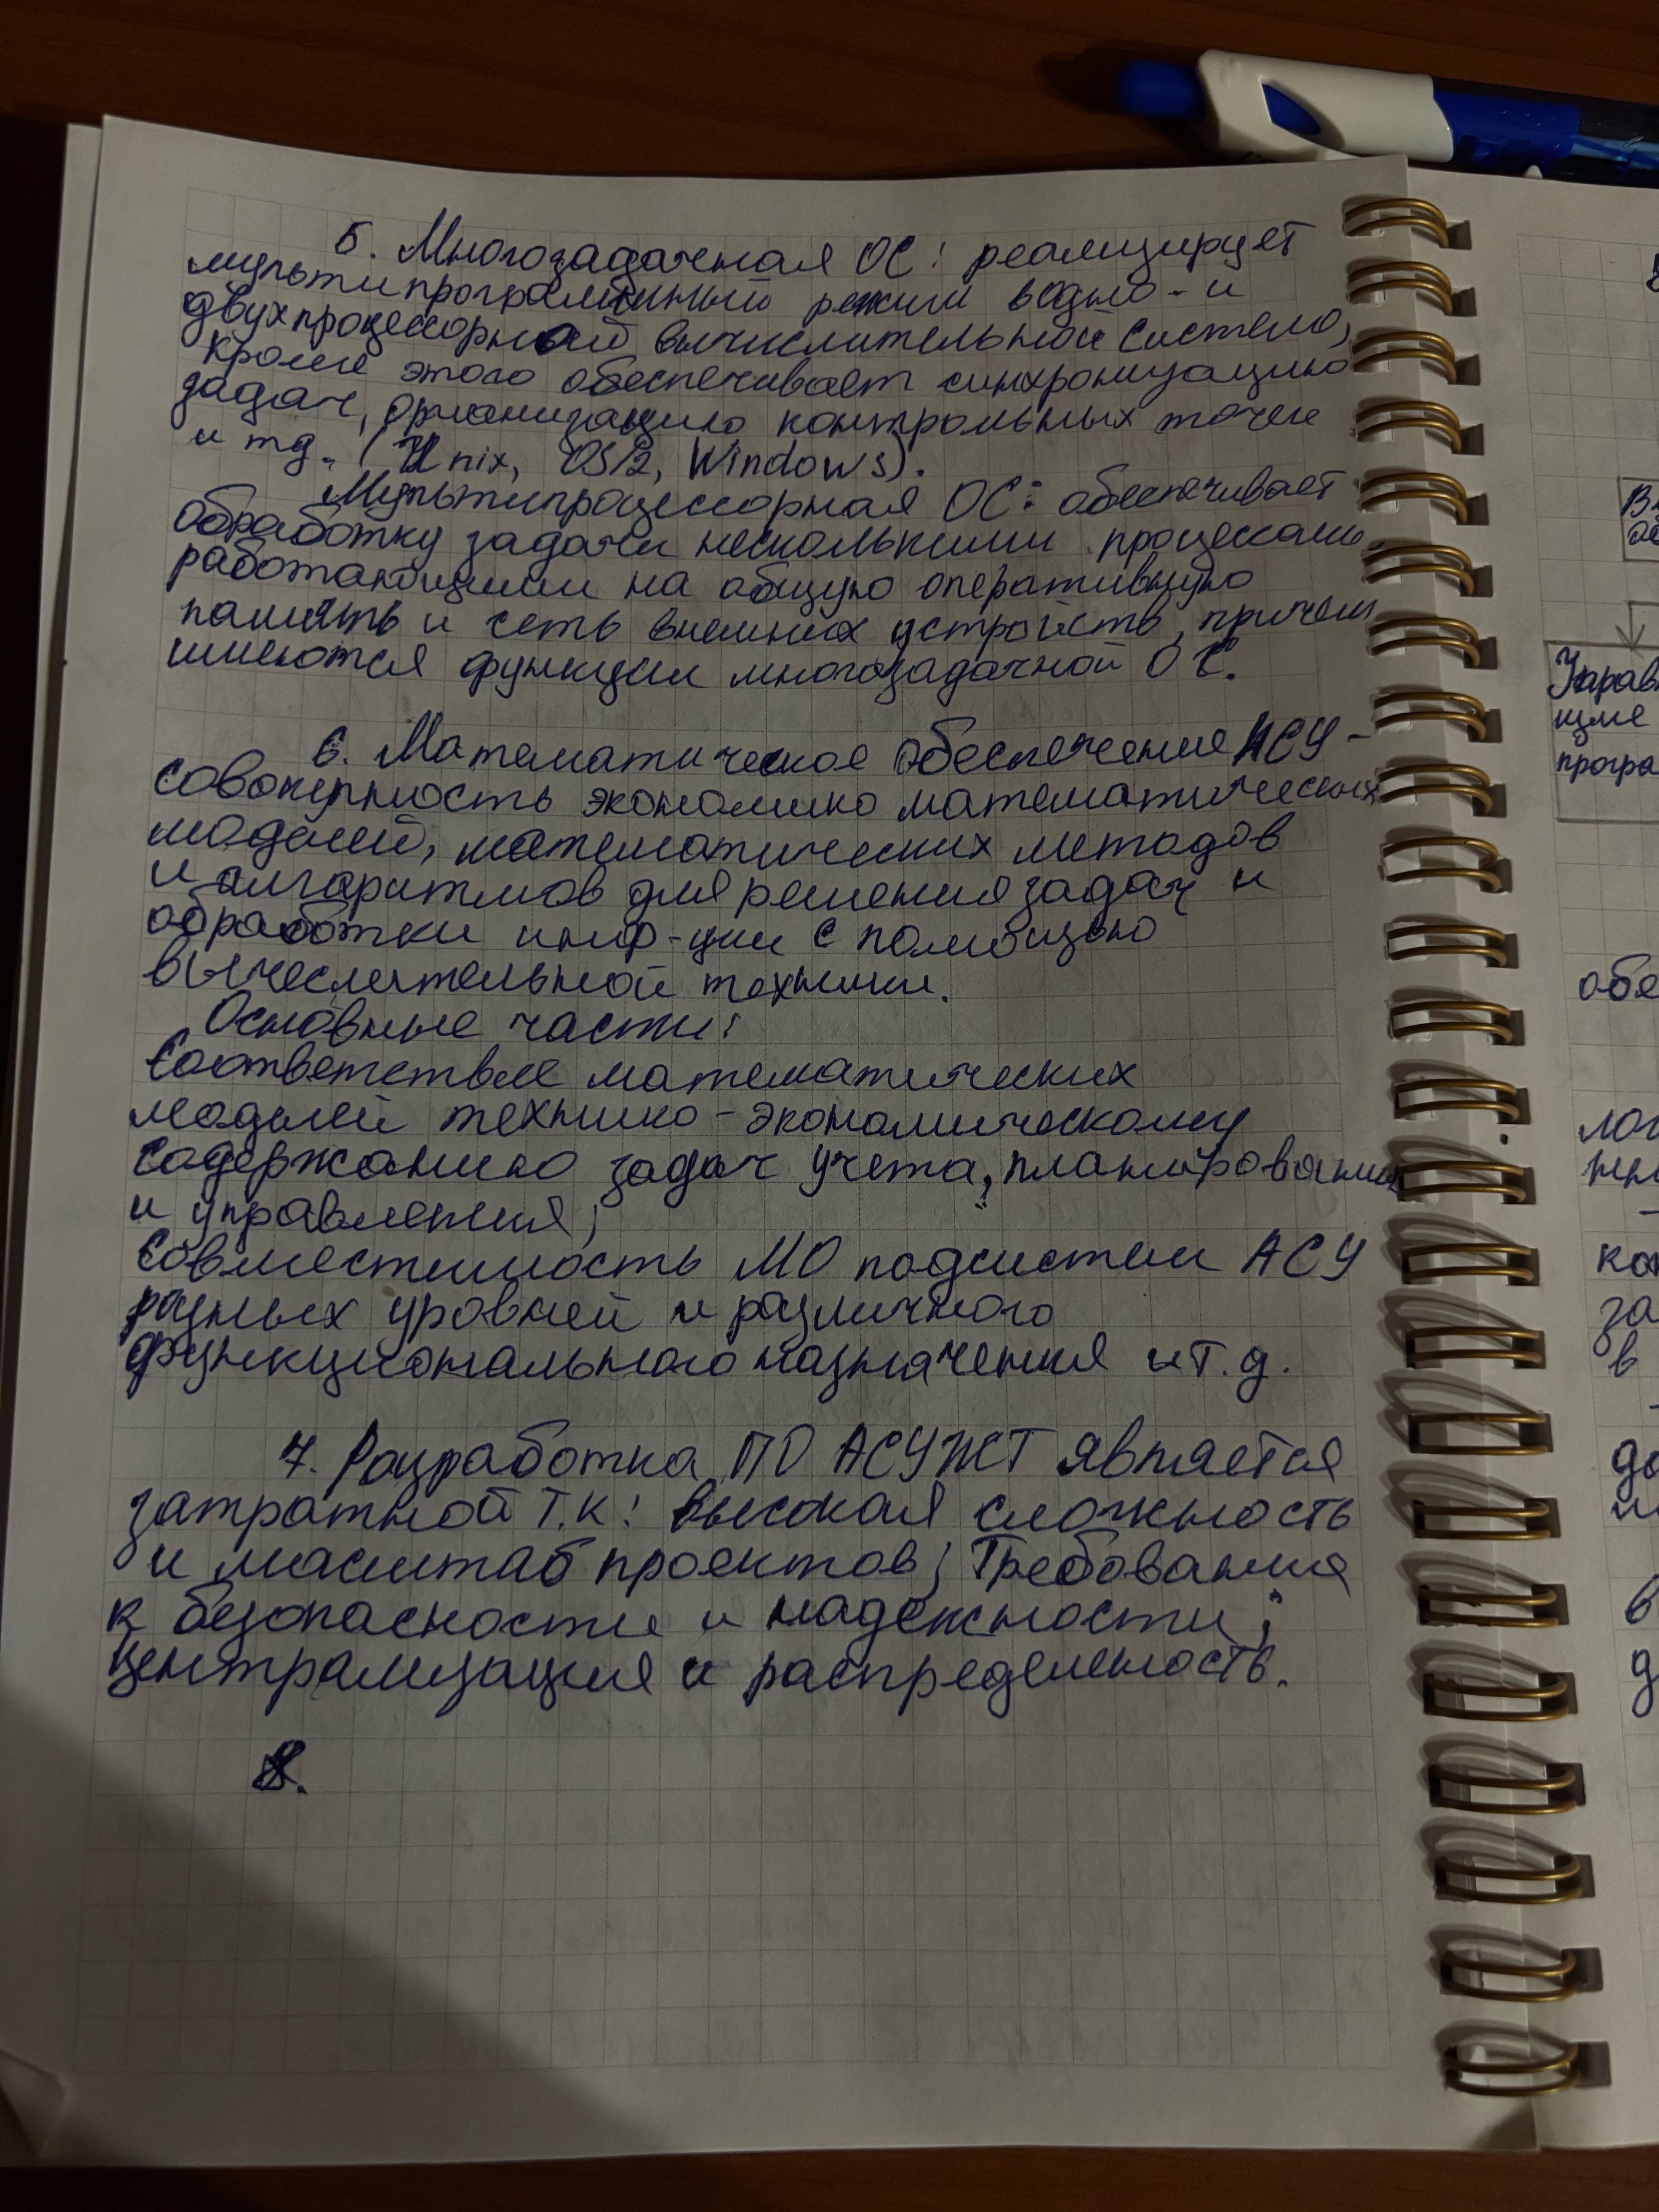 5. Многозадачная ОС: реализирует
мультипрограмминый режим водно- и
двухпроцессорной вычислительной системо,
кроме этого обеспечивает синхронизацию
задач, организацию контрольных точек
и тд. (Unix, OS/2, Windows).
Мультипроцессорная ОС: обеспечивает
обработку задачи несколькими процессами,
работающими на общую оперативную
память и сеть внешних устройств, причем
имеются функции многозадачной ОС.
6. Математическое обеспечение АСУ –
совокупность экономико математических
моделей, математических методов
и алгоритмов для решения задач и
обработки инф-ции с помощью
вычеслительной техники.
Основные части:
Соответствие математических
моделей технико-экономическому
содержанию задач учета, планирования
и управления;
Совместимость МО подсистем АСУ
разных уровней и различного
функционального назначения и т.д.
7. Разработка ПО АСУЖТ является
затратной т.к: высокая сложность
и масштаб проектов; Требования
к безопасности и надежности;
централизация и распределеность.
8.
Управ
щие
програ
обе
лог
ко
за
в
до
в
д